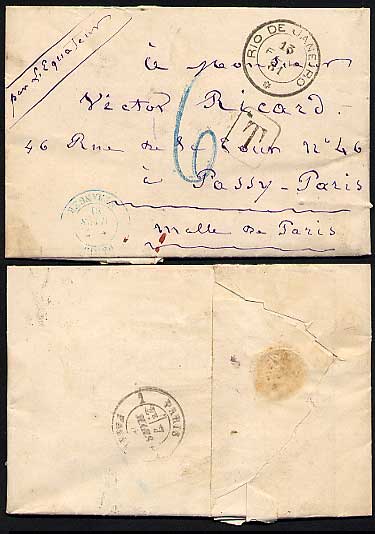 par l'Equateur
RIO DE JANEIRO
15
81
à Monsieur
6
Victor Ricard
T
46 Rue de la Tour Nº 46
à Passy-Paris
Malle de Paris
1 PARIS
7
MARS
PASSY